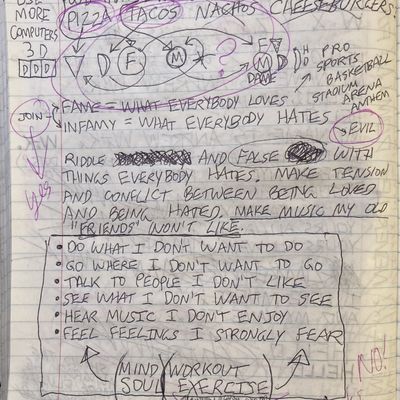 USE
MORE
COMPUTERS
3D
DDD
PIZZA TACOS NACHOS CHEESEBURGERS.
D F M ?
F
M D D H
DAME
PRO
SPORTS
BASKETBALL
STADIUM ARENA
ANTHEM
JOIN
FAME = WHAT EVERYBODY LOVES
INFAMY = WHAT EVERYBODY HATES
EVIL
yes
RIDDLE AND FALSE WITH
THINGS EVERYBODY HATES. MAKE TENSION
AND CONFLICT BETWEEN BEING LOVED
AND BEING HATED. MAKE MUSIC MY OLD
"FRIENDS" WON'T LIKE.
• DO WHAT I DON'T WANT TO DO
• GO WHERE I DON'T WANT TO GO
• TALK TO PEOPLE I DON'T LIKE
• SEE WHAT I DON'T WANT TO SEE
• HEAR MUSIC I DON'T ENJOY
• FEEL FEELINGS I STRONGLY FEAR
MIND WORKOUT
SOUL EXERCISE
NO!